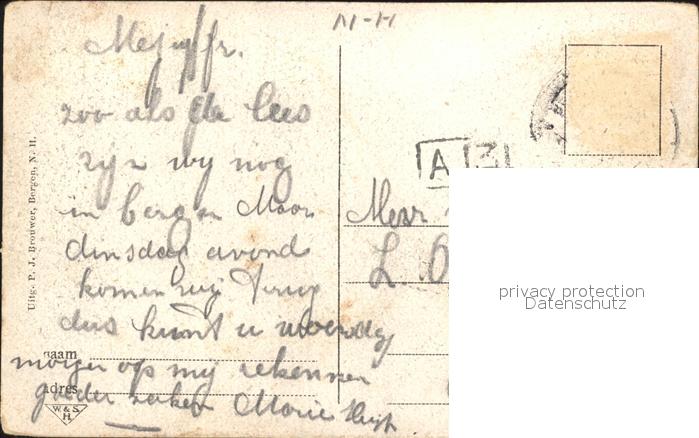 N-H
Mejuffr.
zoo als u lees
zijn wij nog
in bergen Maar
dinsdag avond
komen wij terug
dus kunt u woensdag
morgen op mij rekenen
goeder zaken Marie
naam
adres
W. & S.
H.
Uitg. P. J. Brouwer, Bergen, N. H.
A 3
L.
privacy protection
Datenschutz